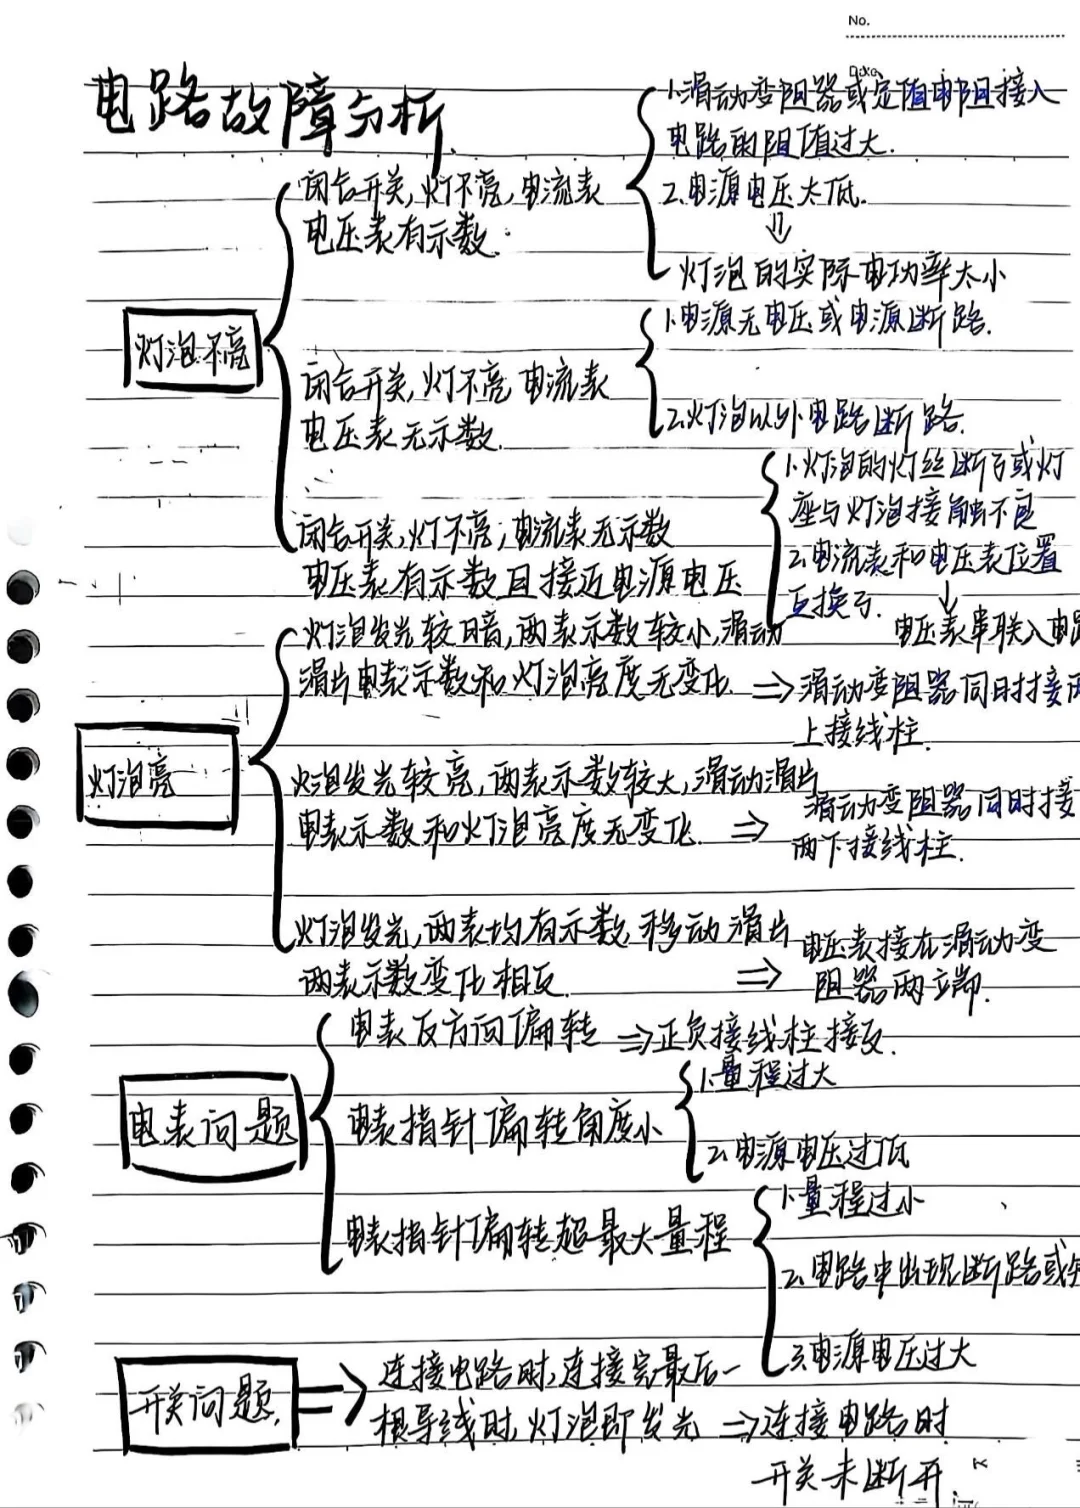 No.
电路故障分析
闭合开关,灯不亮,电流表
电压表有示数.
1.滑动变阻器或定值电阻接入
电路的阻值过大.
2.电源电压太低.
⇓
灯泡的实际电功率太小
灯泡不亮
闭合开关,灯不亮 电流表
电压表无示数.
1.电源无电压或电源断路.
2.灯泡以外电路断路.
闭合开关,灯不亮,电流表无示数
电压表有示数且接近电源电压
1.灯泡的灯丝断了或灯
座与灯泡接触不良
2.电流表和电压表位置
互换了.
↓
电压表串联入电路
灯泡亮
灯泡发光较暗,两表示数较小,滑动
滑片电表示数和灯泡亮度无变化 ⇒滑动变阻器同时接两
上接线柱.
灯泡发光较亮,两表示数较大,滑动滑片
电表示数和灯泡亮度无变化. ⇒
滑动变阻器同时接
两下接线柱.
灯泡发光,两表均有示数,移动滑片
两表示数变化相反. ⇒
电压表接在滑动变
阻器两立端.
电表问题
电表反方向偏转 ⇒正负接线柱接反.
电表指针偏转角度小
1.量程过大
2.电源电压过低
电表指针偏转超最大量程
1.量程过小
2.电路中出现断路或
3.电源电压过大
开关问题.
⇒连接电路时,连接完最后一
根导线时,灯泡即发光 ⇒连接电路时
开关未断开.